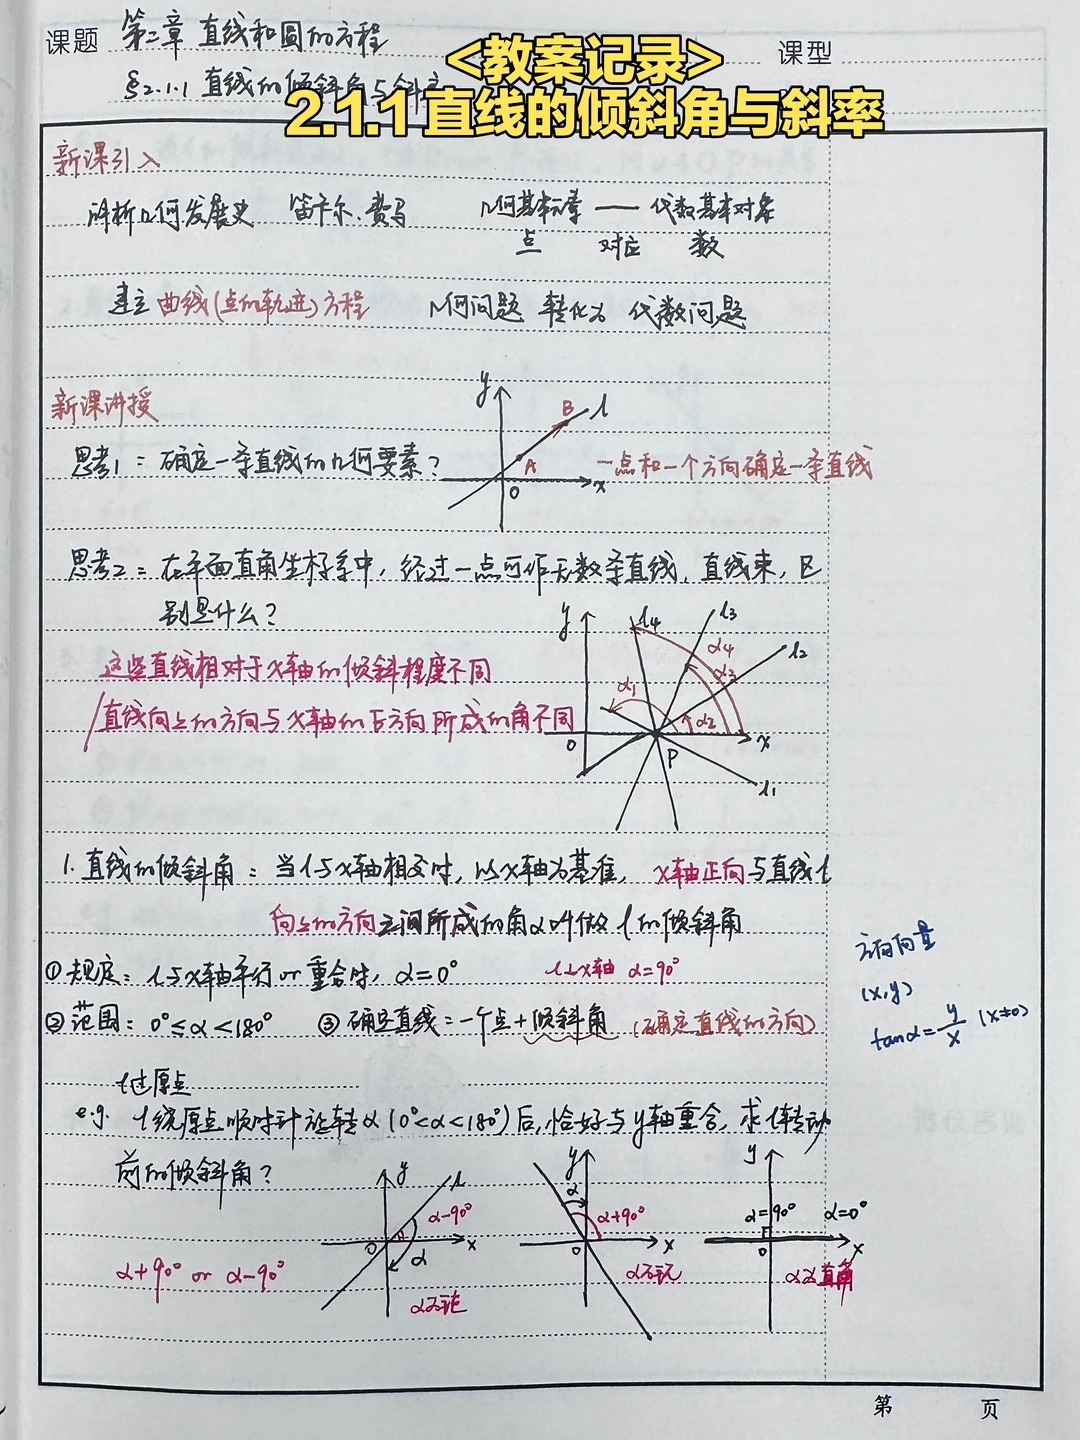 课题 第二章 直线和圆的方程
课型
§2.1.1 直线的倾斜角与斜率
<教案记录>
2.1.1直线的倾斜角与斜率
新课引入
解析几何发展史 笛卡尔、费马 几何基本元素 —— 代数基本对象
点 对应 数
建立 曲线(点的轨迹)方程 几何问题 转化为 代数问题
新课讲授
y
B l
A
O x
思考1：确定一条直线的几何要素？ 一点和一个方向确定一条直线
思考2：在平面直角坐标系中，经过一点可作无数条直线、直线束，区
别是什么？
这些直线相对于x轴的倾斜程度不同
/直线向上的方向与x轴的正方向所成的角不同
y l4 l3 l2
α4 α3
α1 α2
O P x
l1
1. 直线的倾斜角：当l与x轴相交时，以x轴为基准，x轴正向与直线l
向上的方向之间所成的角α叫做l的倾斜角
①规定：l与x轴平行or重合时，α=0° l⊥x轴 α=90°
②范围：0°≤α<180° ③确定直线：一个点+倾斜角 (确定直线的方向)
方向向量
(x,y)
tanα=y/x (x≠0)
l过原点
e.g. l绕原点顺时针旋转α(0°<α<180°)后,恰好与y轴重合,求l转动
前的倾斜角？
α+90° or α-90°
y l
α-90°
O x
α
α为钝
y
α
α+90°
O x
α为锐
y
α=90° α=0°
O x
α为直角
第 页